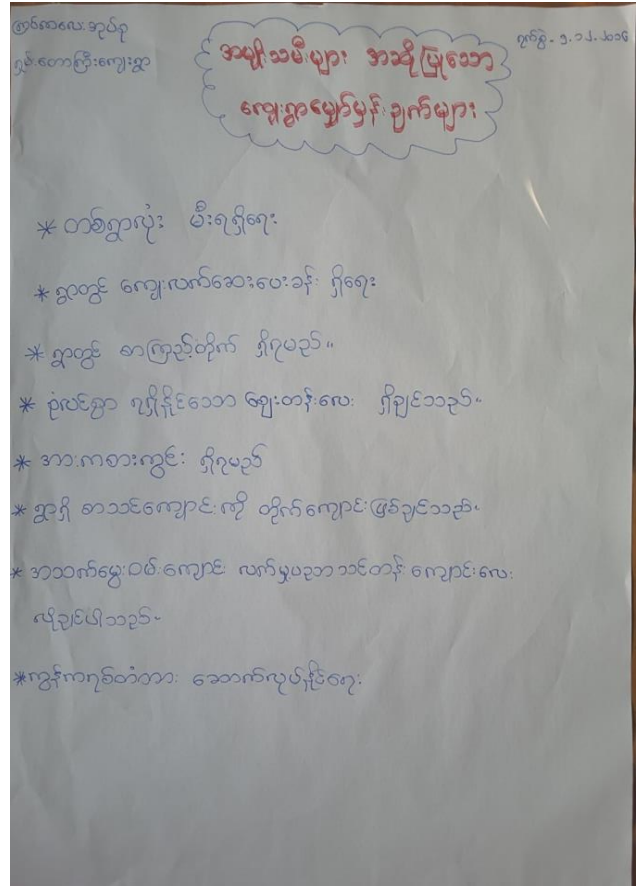 ကြယ်ကလေးအုပ်စု
ရှမ်းတောကြီးကျေးရွာ
ရက်စွဲ - ၁.၁၂.၂၀၁၆
အမျိုးသမီးများ အဆိုပြုသော
ကျေးရွာမျှော်မှန်းချက်များ
* တစ်ရွာလုံး မီးရရှိရေး
* ရွာတွင် ကျေးလက်ဆေးပေးခန်း ရှိရေး
* ရွာတွင် စာကြည့်တိုက် ရှိရမည်။
* စုံလင်စွာ ရရှိနိုင်သော ဈေးတန်းလေး ရှိချင်သည်။
* အားကစားကွင်း ရှိရမည်
* ရွာရှိ စာသင်ကျောင်းကို တိုက်ကျောင်းဖြစ်ချင်သည်။
* အသက်မွေးဝမ်းကျောင်း လက်မှုပညာသင်တန်း ကျောင်းလေး
လိုချင်ပါသည်။
* ကွန်ကရစ်တံတား ဆောက်လုပ်နိုင်ရေး